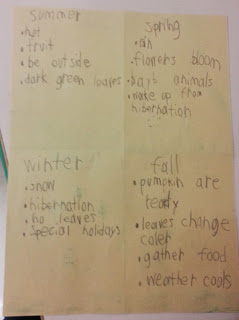 summer
• hot
• fruit
• be outside
• dark green leaves
spring
• rain
• flowers bloom
• baby animals
• wake up from
hibernation
winter
• snow
• hibernation
• no leaves
• special holidays
fall
• pumpkin are
ready
• leaves change
coler
• gather food
• weather cools